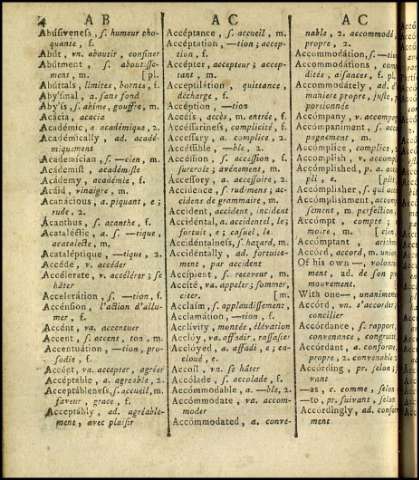 A B
A C
A C
Abúsiveness, s. humeur cho-
quante, f.
Abút, vn. aboutir, confiner
Abútment, s. aboutisse-
ment, m. [pl.
Abúttals, limites, bornes, f.
Abysmal, a. sans fond
Abyss, s. abime, gouffre, m.
Acácia, acacia
Académic, a académique, 2.
Académically, ad. acadé-
miquement
Academician, s. —cien, m.
Académist, académiste
Academy, académie, f.
Acsid, vinaigre, m.
Acanácious, a. piquant, e;
rude, 2.
Acanthus, s. acanthe, f.
Acataléctic, a. s. —tique,
acatalecte, m.
Cataléptique, —tique, 2.
Accéde, v. accéder
Accélerate, v. accélérer; se
hâter
Acceleration, s. —tion, f.
Accénsion, l'action d'allu-
mer, f.
Accént, va. accentuer
Accent, s. accent, ton, m.
Accentuátion, —tion, pro-
sodie, f.
Accépt, va. accepter, agréer
Accéptable, a. agreable, 2.
Accéptableness, s. accueil, m.
faveur, grace, f.
Accéptably, ad. agréable-
ment, avec plaisir
Accéptance, s. accueil, m.
Acceptátion, —tion; accep-
tion, f.
Accépter, accepteur; accep-
tant, m.
Acceptilátion, quittance,
décharge, f.
Accéption, —tion
Accéss, accès, m. entrée, f.
Accéssariness, complicité, f.
Accéssary, a. complice, 2.
Accéssible, —ble, 2.
Accéssion, s. accession, f.
surcroit; avénement, m.
Accéssory, a. accessoire, 2.
Accidence, s. rudimens; ac-
cidens de grammaire, m.
Accident, accident, incident
Accidéntal, a. accidentel, le;
fortuit, e; casuel, le.
Accidéntalness, s. hazard, m.
Accidéntally, ad. fortuite-
ment, par accident
Accipient, s. receveur, m.
Accíte, va. appeler; sommer,
citer, [m.
Accláim, s. applaudissement,
Acclamátion, —tion, f.
Acclívity, montée, élévation
Acclóy, va. affadir, rassasier
Acclóyed, a. affadi, e; en-
cloué, e.
Accoil, va. se hâter
Accoláde, s. accolade, f.
Accómmodable, a. —ble, 2.
Accómmodate, va. accom-
moder
Accómmodated, a. conve-
nable, 2. accommod
propre, 2.
Accommodátion, s. —tio
Accommodátions, com
dités, aisances, f. pl.
Accómmodately, ad. d
maniere propre, juste,
porsionnée
Accómpany, v. accompa
Accómpaniment, s. acc
pagnement, m.
Accómplice, complice,
Accómplish, v. accomp
Accómplished, p. a. acc
pli, e. [
Accómplisher, s. qui ac
Accómplishment, accom
sement, m. perfection,
Accómpt, compte;
moire, m. [
Accómptant, arithm
Accórd, accord, m. union
Of his own—, volon
ment, ad. de son pr
mouvement.
With one—, unanimem
Accórd, vn. s'accorder
concilier
Accórdance, s. rapport,
convenance, congruit
Accórdant, a. conforme
propre, 2. convenable
Accórding, pr. selon;
vant
—as, c. comme, selon
—to, pr. suivant, selon
Accórdingly, ad. confor
ment